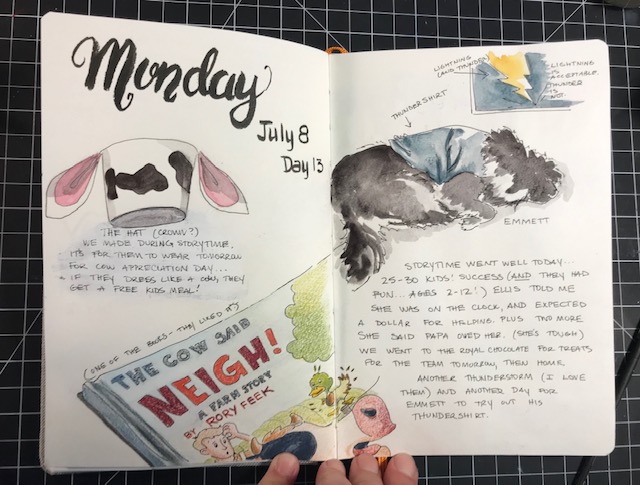 Monday
July 8
Day 13
THE HAT (CROWN?)
WE MADE DURING STORYTIME.
IT'S FOR THEM TO WEAR TOMORROW
FOR COW APPRECIATION DAY...
IF THEY DRESS LIKE A COW, THEY
GET A FREE KIDS MEAL!
(ONE OF THE BOOKS - THEY LIKED IT)
THE COW SAID
NEIGH!
A FARM STORY
BY RORY FEEK
LIGHTNING
(AND THUNDER)
LIGHTNING
IS
ACCEPTABLE.
THUNDER
IS
NOT.
THUNDERSHIRT
EMMETT
STORYTIME WENT WELL TODAY...
25-30 KIDS! SUCCESS (AND THEY HAD
FUN... AGES 2-12!) ELLIS TOLD ME
SHE WAS ON THE CLOCK, AND EXPECTED
A DOLLAR FOR HELPING. PLUS TWO MORE
SHE SAID PAPA OWED HER. (SHE'S TOUGH)
WE WENT TO THE ROYAL CHOCOLATE FOR TREATS
FOR THE TEAM TOMORROW, THEN HOME.
ANOTHER THUNDERSTORM (I LOVE
THEM) AND ANOTHER DAY FOR
EMMETT TO TRY OUT HIS
THUNDERSHIRT.